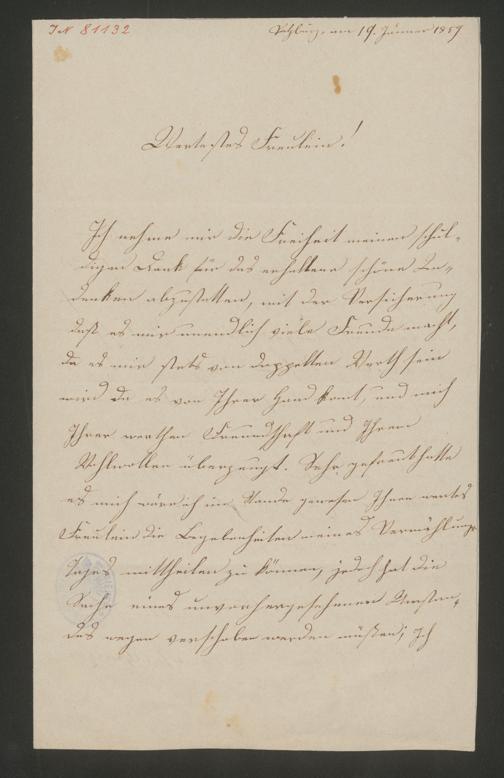 IN 81132
Salzburg, am 19. Jänner 1857
Wertestes Fräulein!
Ich nehme mir die Freiheit meinen schul-
digen Dank für das erhaltene schöne An-
denken abzustatten, mit der Versicherung
daß es mir unendlich viele Freude macht,
da es mir stets von doppelten Werth sein
wird da es von Ihrer Hand komt, und mich
Ihrer werthen Freundschaft und Ihrem
Wohlwollen überzeugt. Sehr gefreut hatte
es mich wäre ich im Stande gewesen Ihnen wertes
Fräulein die Begebenheiten meines Vermählungs
Tages mittheilen zu können, jedoch hat die
Sache eines unvorhergesehenen Umstan-
des wegen verschoben werden müßen; Ich